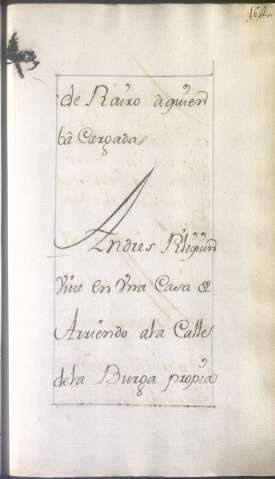 164.
de Rairo â quien
bâ Cargada
Andres
Vive en Vna Casa &
Arriendo ala Calle
dela Burga propia